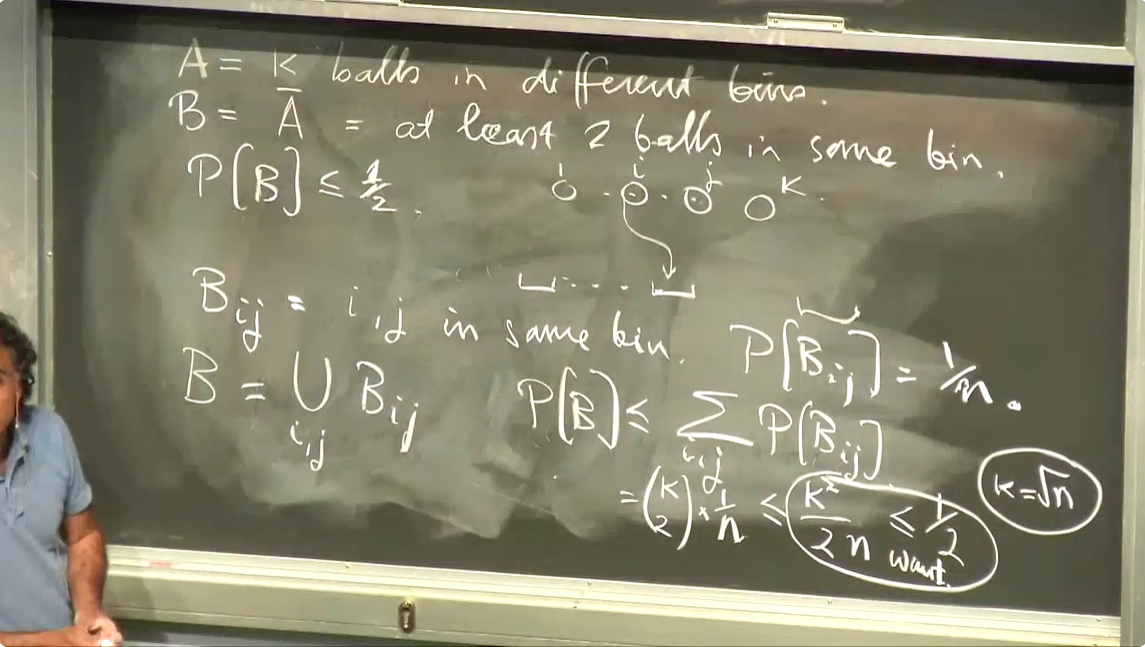 A = K balls in different bins.
B = A̅ = at least 2 balls in same bin.
P[B] ≤ 1/2.
1 i j K
B_ij = i,j in same bin. P[B_ij] = 1/n.
B = ∪_{i,j} B_ij P[B] ≤ ∑_{i,j} P[B_ij]
= (K 2) × 1/n ≤ K²/2n ≤ 1/2 want.
K = √n